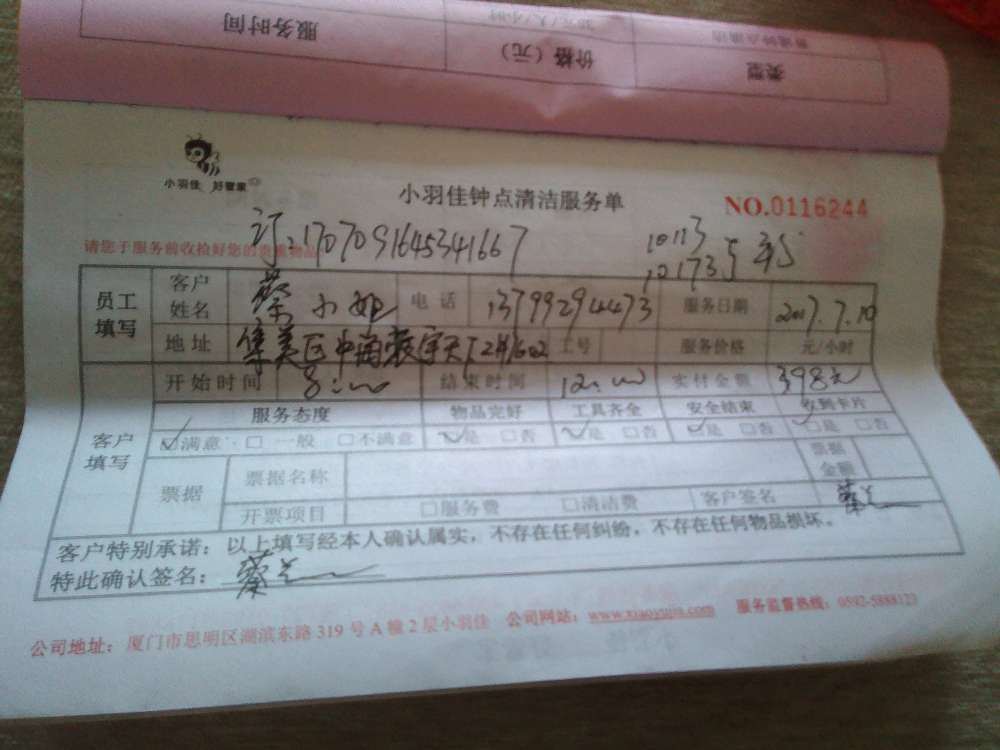 服务时间
价格（元）
类型
小羽佳 好管家
小羽佳钟点清洁服务单
NO.0116244
订:1707091645341667
10113
101735
请您于服务前收捡好您的贵重物品
员工填写 客户姓名 蔡小姐 电话 13799294473 服务日期 2017.7.10
地址 集美区中海寰宇天下 工号 服务价格 元/小时
客户填写 开始时间 8:00 结束时间 12:00 实付金额 398元
服务态度 物品完好 工具齐全 安全结束 收到卡片
☑满意 □一般 □不满意 ☑是 □否 ☑是 □否 ☑是 □否 ☑是 □否
票据 票据名称 票据金额
开票项目 □服务费 □清洁费 客户签名 蔡
客户特别承诺：以上填写经本人确认属实，不存在任何纠纷，不存在任何物品损坏。
特此确认签名：蔡
公司地址：厦门市思明区湖滨东路 319 号 A 幢 2 层小羽佳 公司网站：www.xiaoyujia.com 服务监督热线：0592-5888123